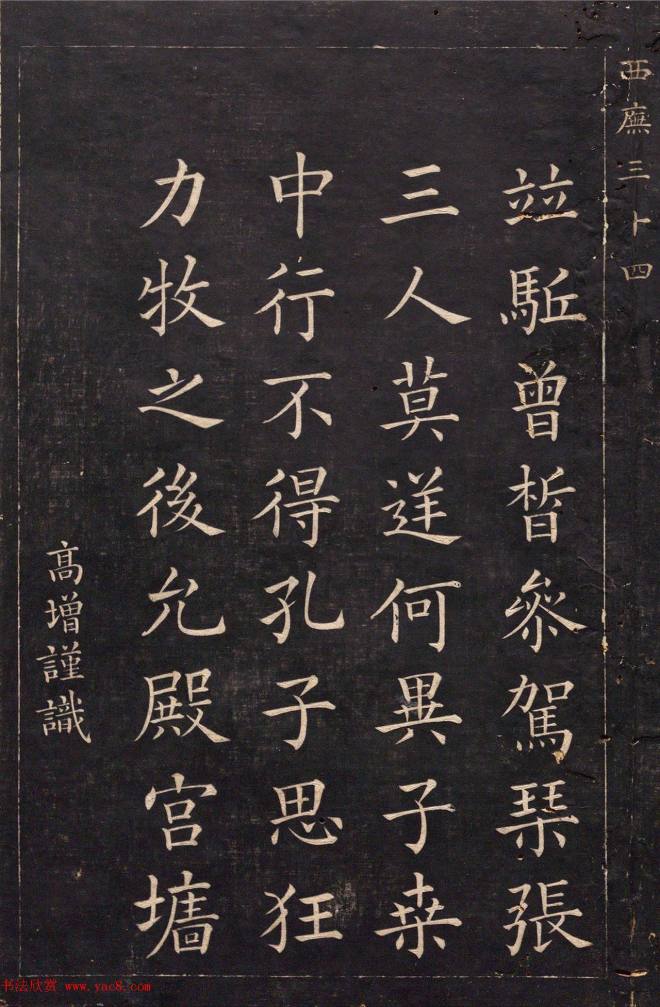 西廡三十四
竝駈曾晳叅駕琹張
三人莫逆何異子桒
中行不得孔子思狂
力牧之後允殿宮墻
高增謹識
书法欣赏 www.yac8.com